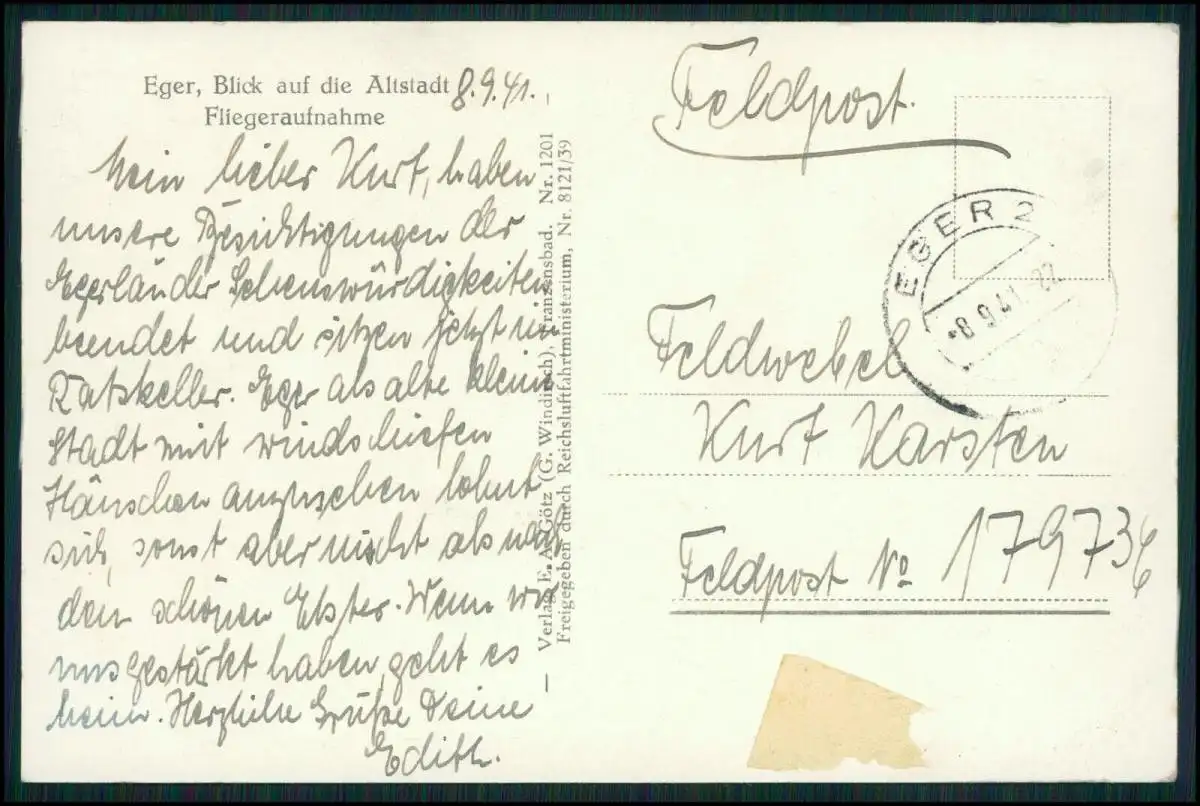 Eger, Blick auf die Altstadt 8.9.41.
Fliegeraufnahme
Mein lieber Kurt, haben
unsere Besichtigungen der
Egerländer Sehenswürdigkeiten
beendet und sitzen jetzt im
Ratskeller. Eger als alte kleine
Stadt mit windschiefen
Häuschen anzusehen lohnt
sich, sonst aber nicht als nach
dem schönen Elster. Wenn wir
uns gestärkt haben, geht es
heim. Herzliche Grüße Deine
Edith.
Verlag E. A. Götz (G. Windisch), Franzensbad. Nr. 1201
Freigegeben durch Reichsluftfahrtministerium, Nr. 8121/39
Feldpost.
EGER 2
8.9.41.-22
Feldwebel
Kurt Karsten
Feldpost No 179736